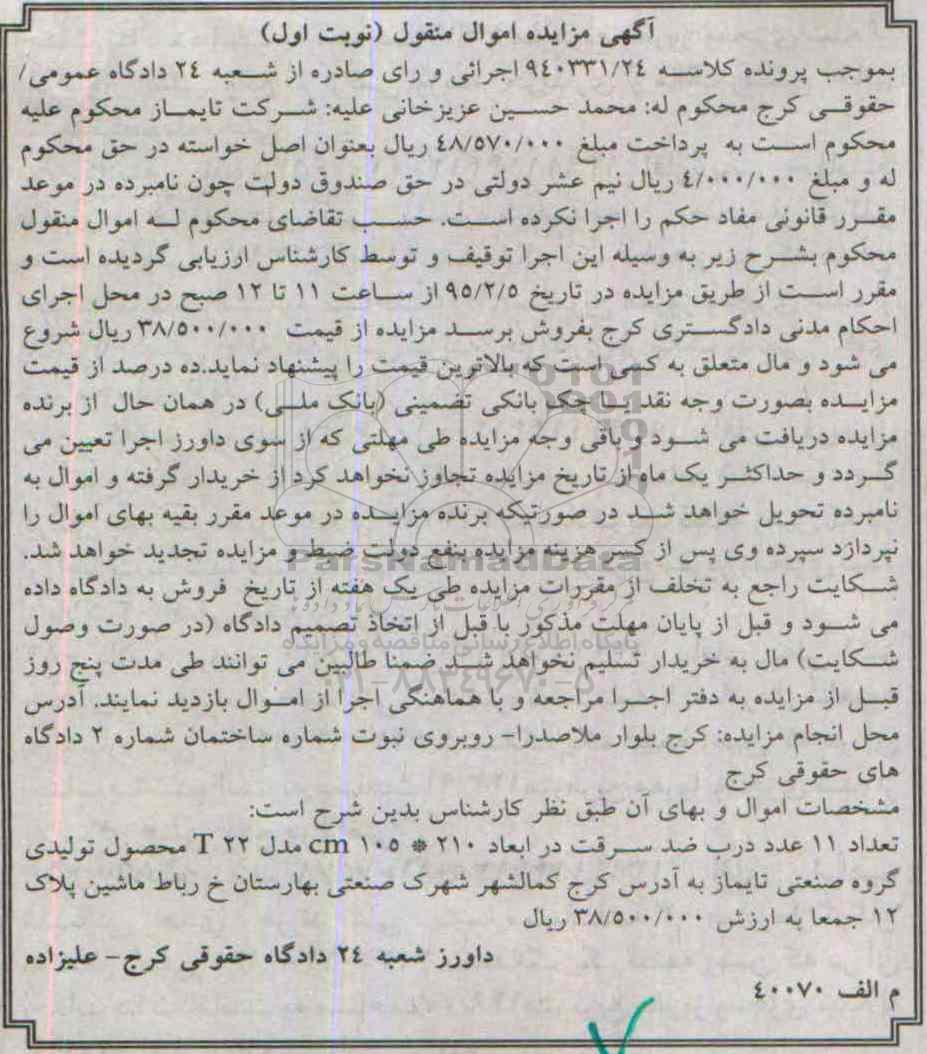 آگهی مزایده اموال منقول (نوبت اول)
بموجب پرونده کلاسه ۹۴۰۳۳۱/۲۴ اجرائی و رای صادره از شعبه ۲۴ دادگاه عمومی/
حقوقی کرج محکوم له: محمد حسین عزیزخانی علیه: شرکت تایماز محکوم علیه
محکوم است به پرداخت مبلغ ۴۸/۵۷۰/۰۰۰ ریال بعنوان اصل خواسته در حق محکوم
له و مبلغ ۴/۰۰۰/۰۰۰ ریال نیم عشر دولتی در حق صندوق دولت چون نامبرده در موعد
مقرر قانونی مفاد حکم را اجرا نکرده است. حسب تقاضای محکوم له اموال منقول
محکوم بشرح زیر به وسیله این اجرا توقیف و توسط کارشناس ارزیابی گردیده است و
مقرر است از طریق مزایده در تاریخ ۹۵/۲/۵ از ساعت ۱۱ تا ۱۲ صبح در محل اجرای
احکام مدنی دادگستری کرج بفروش برسد مزایده از قیمت ۳۸/۵۰۰/۰۰۰ ریال شروع
می شود و مال متعلق به کسی است که بالاترین قیمت را پیشنهاد نماید.ده درصد از قیمت
مزایده بصورت وجه نقد یا چک بانکی تضمینی (بانک ملی) در همان حال از برنده
مزایده دریافت می شود و باقی وجه مزایده طی مهلتی که از سوی داورز اجرا تعیین می
گردد و حداکثر یک ماه از تاریخ مزایده تجاوز نخواهد کرد از خریدار گرفته و اموال به
نامبرده تحویل خواهد شد در صورتیکه برنده مزایده در موعد مقرر بقیه بهای اموال را
نپردازد سپرده وی پس از کسر هزینه مزایده بنفع دولت ضبط و مزایده تجدید خواهد شد.
ParsNamadData
شکایت راجع به تخلف از مقررات مزایده طی یک هفته از تاریخ فروش به دادگاه داده
می شود و قبل از پایان مهلت مذکور یا قبل از اتخاذ تصمیم دادگاه (در صورت وصول
پایگاه اطلاع رسانی مناقصه و مزایده
شکایت) مال به خریدار تسلیم نخواهد شد ضمنا طالبین می توانند طی مدت پنج روز
۰۲۱-۸۸۳۴۹۶۷۰-۵
قبل از مزایده به دفتر اجرا مراجعه و با هماهنگی اجرا از اموال بازدید نمایند. آدرس
محل انجام مزایده: کرج بلوار ملاصدرا- روبروی نبوت شماره ساختمان شماره ۲ دادگاه
های حقوقی کرج
مشخصات اموال و بهای آن طبق نظر کارشناس بدین شرح است:
تعداد ۱۱ عدد درب ضد سرقت در ابعاد ۲۱۰ * ۱۰۵ cm مدل T ۲۲ محصول تولیدی
گروه صنعتی تایماز به آدرس کرج کمالشهر شهرک صنعتی بهارستان خ رباط ماشین پلاک
۱۲ جمعا به ارزش ۳۸/۵۰۰/۰۰۰ ریال
داورز شعبه ۲۴ دادگاه حقوقی کرج- علیزاده
م الف ۴۰۰۷۰